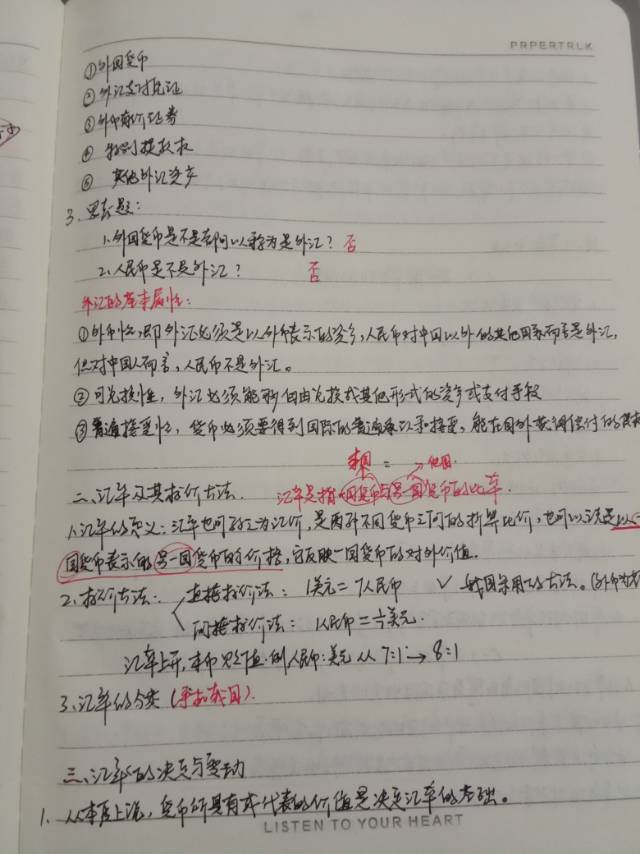 PRPERTRLK
①外国货币
②外汇支付凭证
③外币有价证券
④ 特别提款权
⑤ 其他外汇资产
3.思考题:
1.外国货币是不是都可以称为是外汇? 否
2.人民币是不是外汇? 否
外汇的基本属性:
①外币性,即外汇必须是以外币表示的资产,人民币对中国以外的其他国家而言是外汇,
但对中国人而言,人民币不是外汇。
②可兑换性,外汇必须能够自由兑换成其他形式的资产或支付手段
③普遍接受性,货币必须要得到国际的普遍承认和接受,能在国外获得偿付的债权
本国 = 他国
二、汇率及其标价方法. 汇率是指一国货币与另一国货币的比率.
1.汇率的定义:汇率也可称之为汇价,是两种不同货币之间的折算比价,也可以说是以一
国货币表示的另一国货币的价格,它反映一国货币的对外价值.
2.标价方法: 直接标价法: 1美元=7人民币 ✓ 我国采用的方法。(外币为
间接标价法: 1人民币=1/7美元.
汇率上升,本币贬值.例人民币:美元从7:1→8:1
3.汇率的分类(
三、汇率的决定与变动
1.从本质上说,货币所具有或代表的价值是决定汇率的基础。
LISTEN TO YOUR HEART